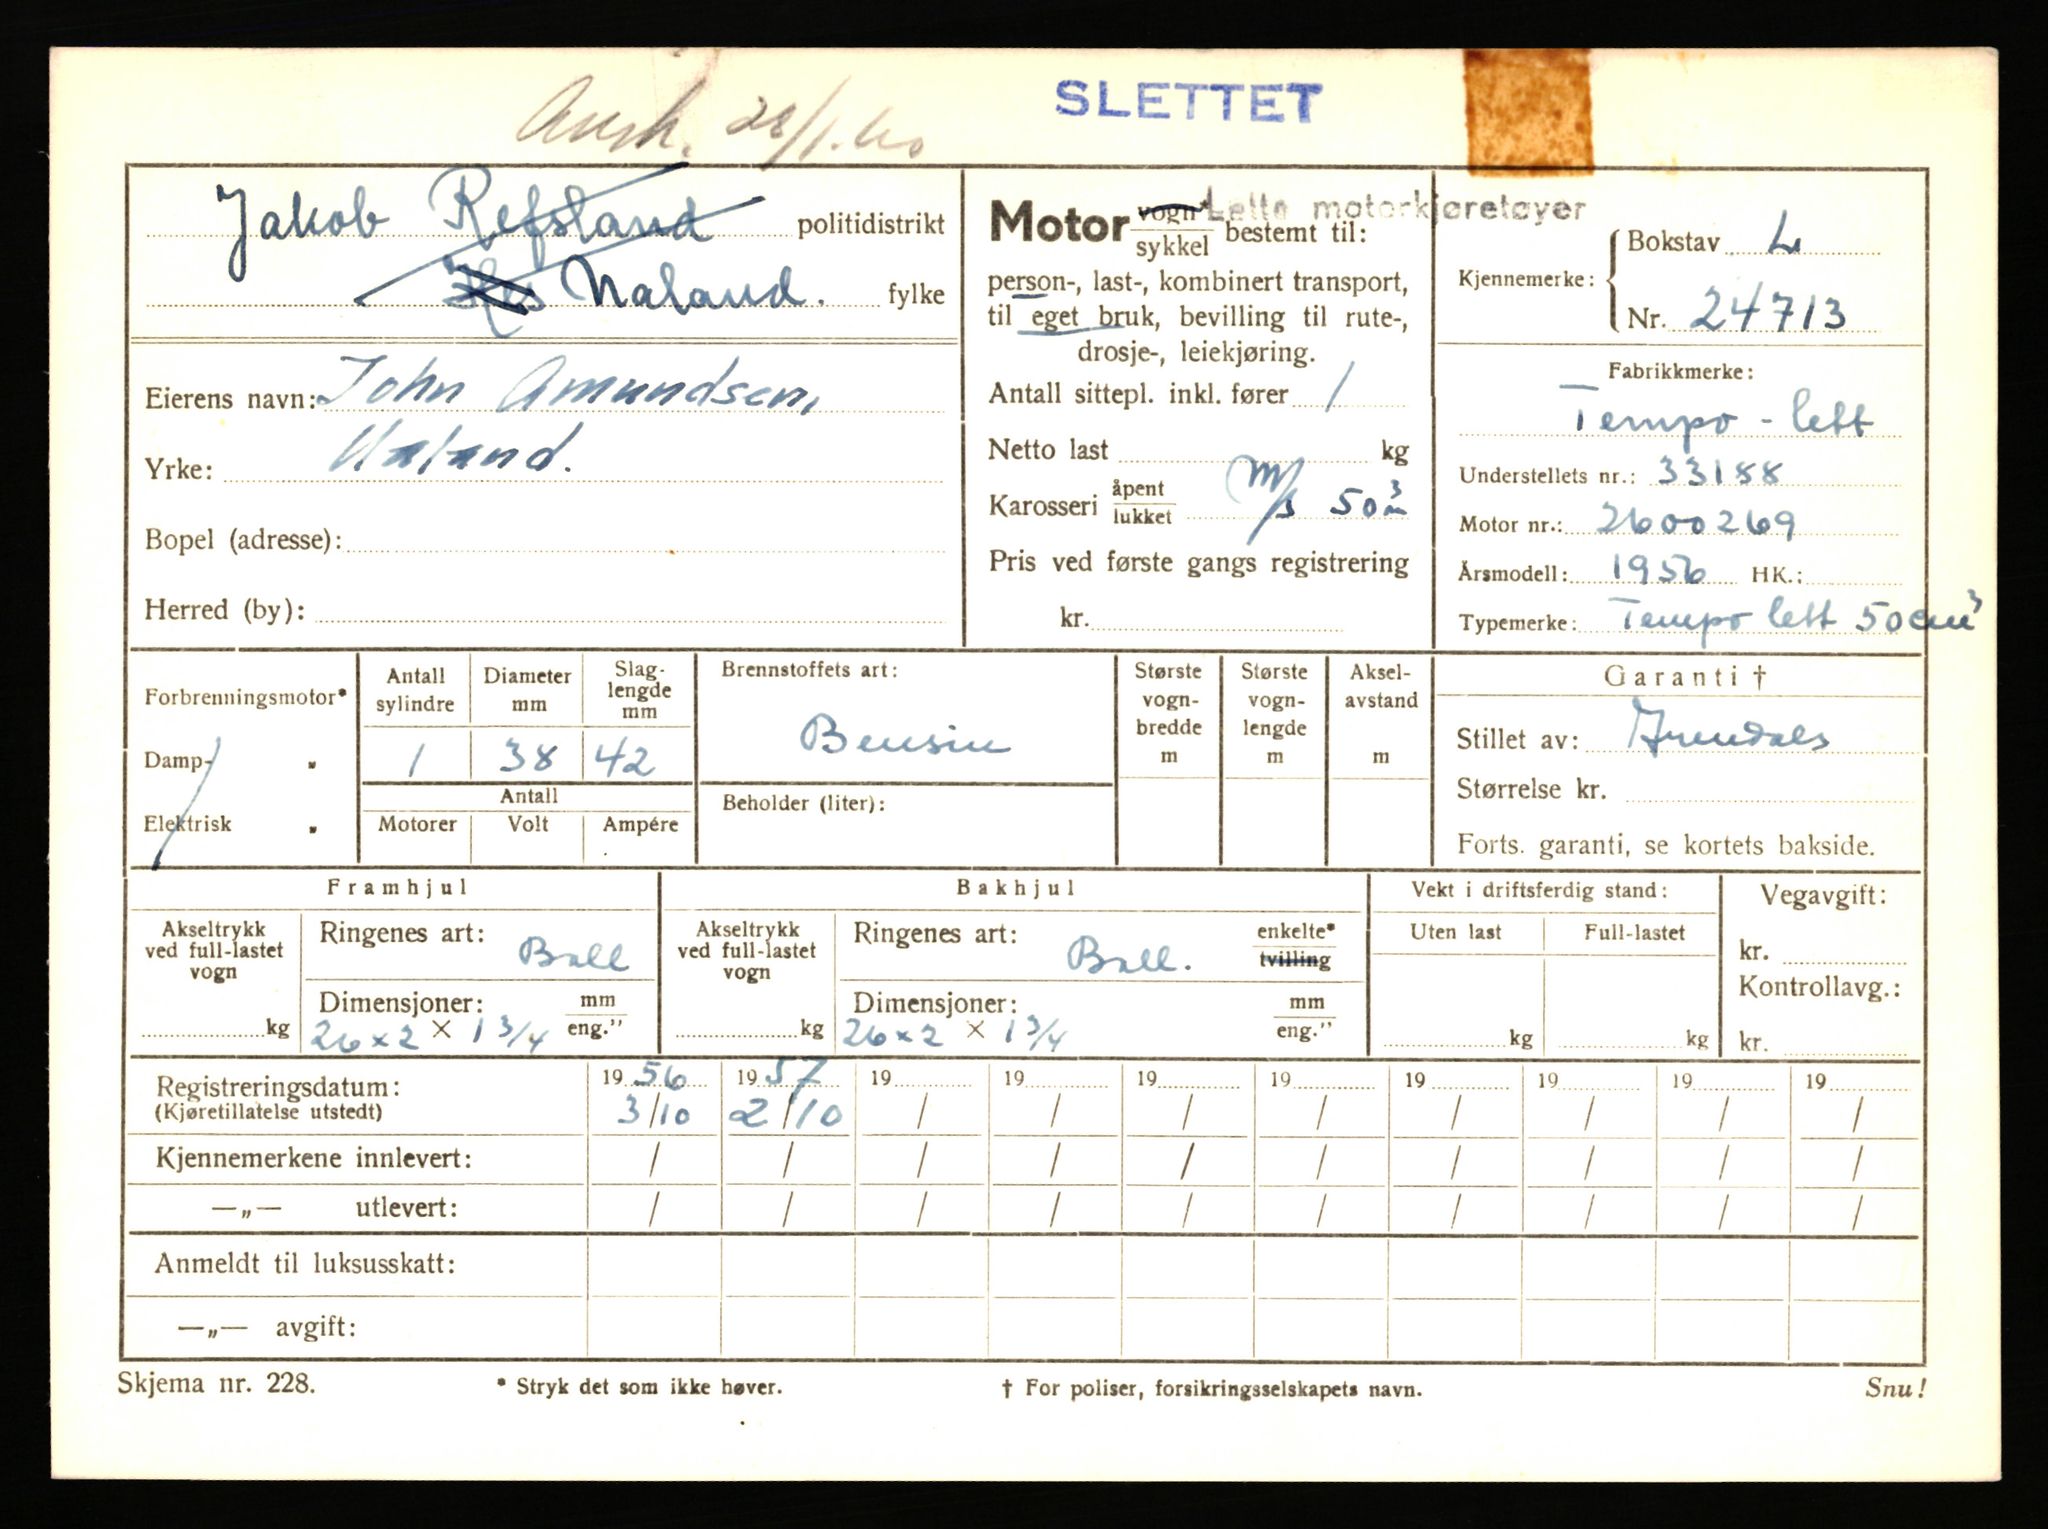 Avsk. 28/1.60
SLETTET
Jakob Refsland politidistrikt
Naland. fylke
Eierens navn: John Amundsen,
Yrke: Naland.
Bopel (adresse):
Herred (by):
Motor vogn* sykkel bestemt til:
Lette motorkjøretøyer
person-, last-, kombinert transport,
til eget bruk, bevilling til rute-,
drosje-, leiekjøring.
Antall sittepl. inkl. fører 1
Netto last kg
Karosseri åpent lukket m/s 50 m³
Pris ved første gangs registrering
kr.
Kjennemerke: Bokstav L
Nr. 24713
Fabrikkmerke:
Tempo - lett
Understellets nr.: 33188
Motor nr.: 2600269
Årsmodell: 1956 HK.:
Typemerke: Tempo lett 50 cm³
Forbrenningsmotor*
Damp- „
Elektrisk „
Antall sylindre Diameter mm Slag-lengde mm
1 38 42
Antall
Motorer Volt Ampére
Brennstoffets art:
Bensin
Beholder (liter):
Største vogn-bredde m
Største vogn-lengde m
Aksel-avstand m
Garanti †
Stillet av:
Størrelse kr.
Forts. garanti, se kortets bakside.
Framhjul
Akseltrykk ved full-lastet vogn
kg
Ringenes art: Ball
Dimensjoner: mm eng.”
26 x 2 x 1 3/4
Bakhjul
Akseltrykk ved full-lastet vogn
kg
Ringenes art: Ball. enkelte* tvilling
Dimensjoner: mm eng.”
26 x 2 x 1 3/4
Vekt i driftsferdig stand:
Uten last Full-lastet
kg kg
Vegavgift:
kr.
Kontrollavg.:
kr.
Registreringsdatum: 19 56 19 57 19 19 19 19 19 19 19 19
(Kjøretillatelse utstedt) 3/10 2/10 / / / / / / / /
Kjennemerkene innlevert: / / / / / / / / / /
—„— utlevert: / / / / / / / / / /
Anmeldt til luksusskatt:
—„— avgift:
Skjema nr. 228. * Stryk det som ikke høver. † For poliser, forsikringsselskapets navn. Snu!